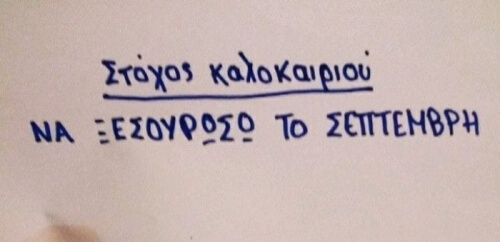 Στόχος καλοκαιριού
ΝΑ ΞΕΣΟΥΡΟΣΟ ΤΟ ΣΕΠΤΕΜΒΡΗ